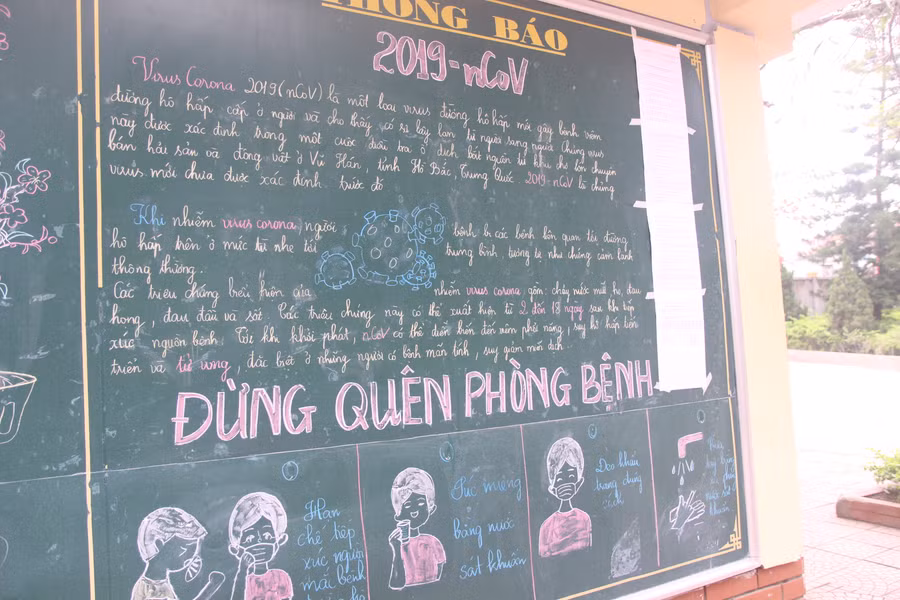 THÔNG BÁO
2019-nCoV
Virus Corona 2019 (nCoV) là một loại virus đường hô hấp mới gây bệnh viêm
đường hô hấp cấp ở người và cho thấy có sự lây lan từ người sang người. Chủng virus
này được xác định trong một cuộc điều tra ổ dịch bắt nguồn từ khu chợ lớn chuyên
bán hải sản và động vật ở Vũ Hán, tỉnh Hồ Bắc, Trung Quốc. 2019-nCoV là chủng
virus mới chưa được xác định trước đó
Khi nhiễm virus corona, người bệnh bị các bệnh liên quan tới đường
hô hấp trên ở mức từ nhẹ tới trung bình tương tự như chứng cảm lạnh
thông thường.
Các triệu chứng biểu hiện của nhiễm virus corona, gồm: chảy nước mũi, ho, đau
họng, đau đầu và sốt. Các triệu chứng này có thể xuất hiện từ 2 đến 18 ngày sau khi tiếp
xúc nguồn bệnh. Từ khi khởi phát, nCoV có thể diễn biến đến viêm phổi nặng, suy hô hấp tiến
triển và tử vong, đặc biệt ở những người có bệnh mãn tính, suy giảm miễn dịch.
ĐỪNG QUÊN PHÒNG BỆNH
Hạn
chế tiếp
xúc người
mắc bệnh
Súc miệng
bằng nước
sát khuẩn
Đeo khẩu
trang đúng
cách